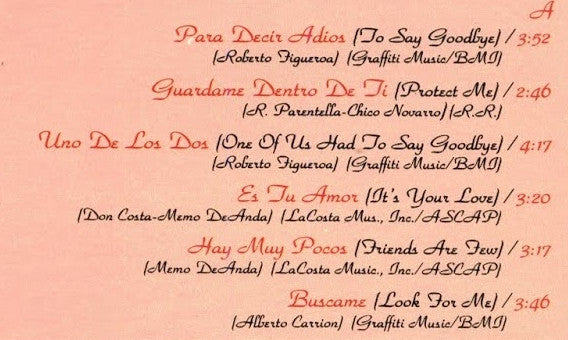 A
Para Decir Adios (To Say Goodbye) / 3:52
(Roberto Figueroa) (Graffiti Music/BMI)
Guardame Dentro De Ti (Protect Me) / 2:46
(R. Parentella-Chico Novarro) (R.R.)
Uno De Los Dos (One Of Us Had To Say Goodbye) / 4:17
(Roberto Figueroa) (Graffiti Music/BMI)
Es Tu Amor (It's Your Love) / 3:20
(Don Costa-Memo DeAnda) (LaCosta Mus., Inc./ASCAP)
Hay Muy Pocos (Friends Are Few) / 3:17
(Memo DeAnda) (LaCosta Music., Inc./ASCAP)
Buscame (Look For Me) / 3:46
(Alberto Carrion) (Graffiti Music/BMI)